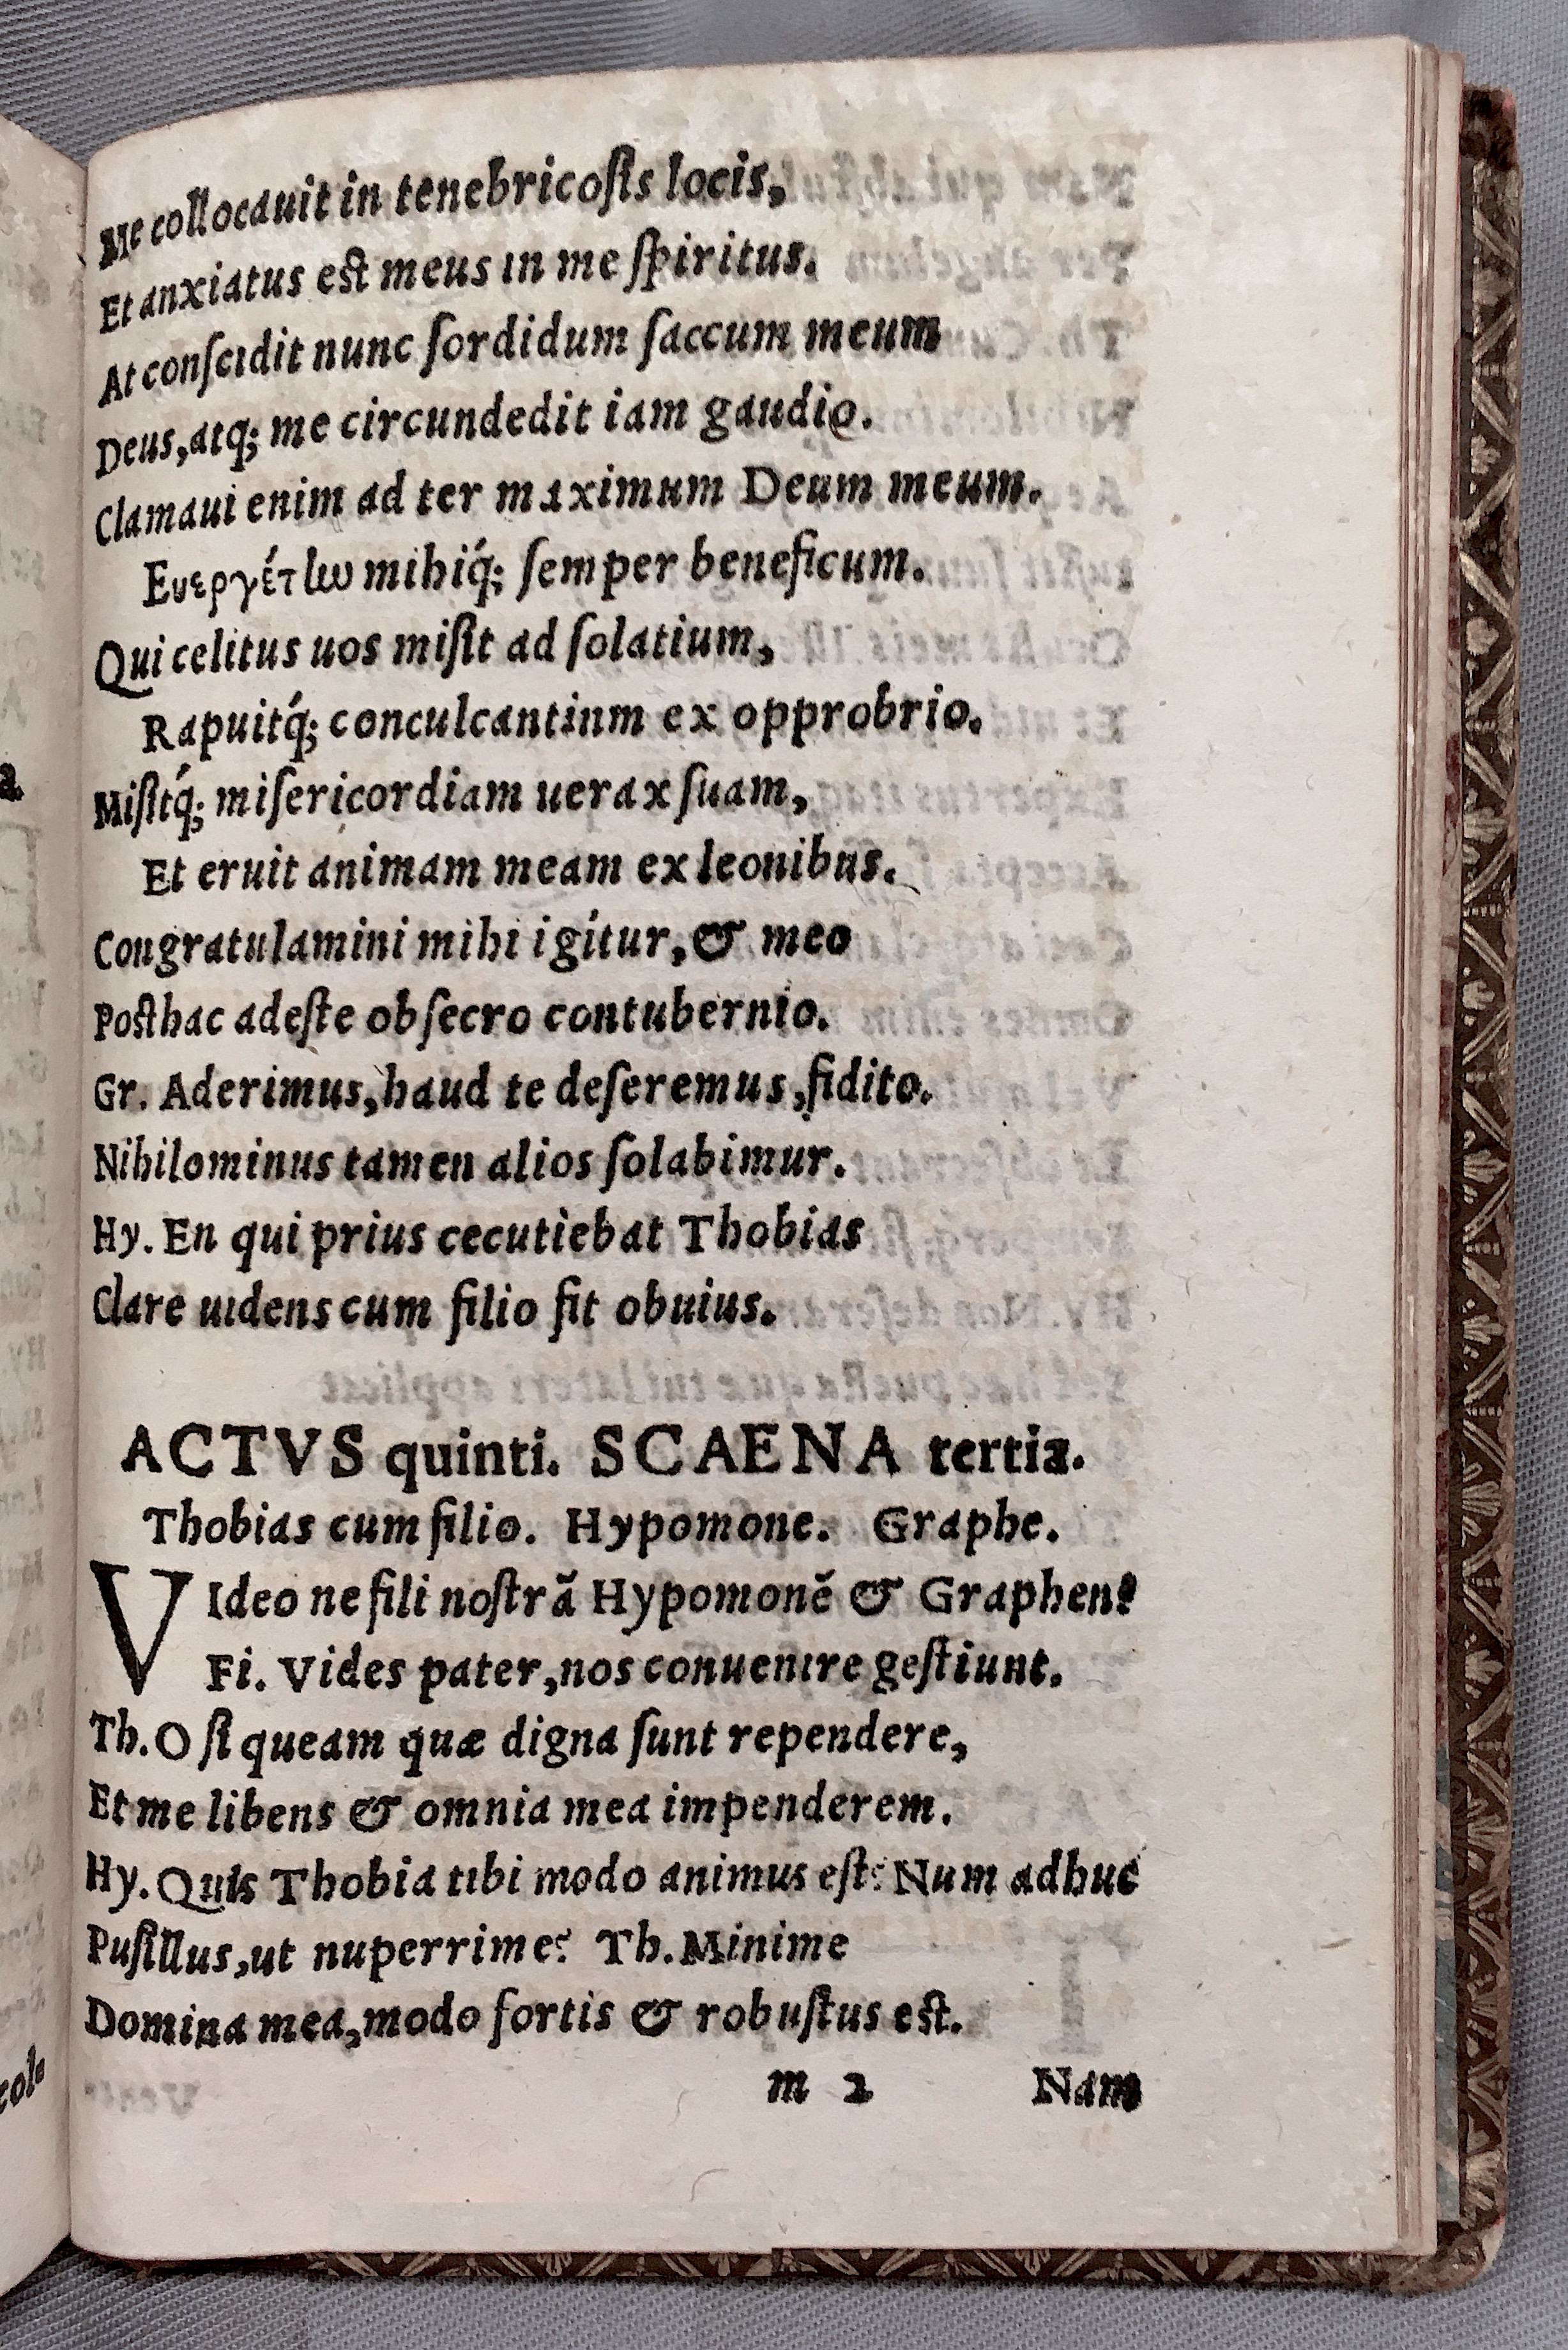 Me collocauit in tenebricoſis locis,
Et anxiatus eſt meus in me ſpiritus.
At conſcidit nunc ſordidum ſaccum meum
Deus, atq; me circundedit iam gaudio.
Clamaui enim ad ter maximum Deum meum.
Ευεργέτlω mihiq́; ſemper beneficum.
Qui celitus uos miſit ad ſolatium,
Rapuitq́; conculcantium ex opprobrio.
Miſitq́; miſericordiam uerax ſuam,
Et eruit animam meam ex leonibus.
Congratulamini mihi igitur, & meo
Poſthac adeſte obſecro contubernio.
Gr. Aderimus, haud te deſeremus, fidito.
Nihilominus tamen alios ſolabimur.
Hy. En qui prius cecutiebat Thobias
Clare uidens cum filio fit obuius.
ACTVS quinti. SCAENA tertia.
Thobias cum filio. Hypomone. Graphe.
VIdeo ne fili noſtrã Hypomonẽ & Graphen?
Fi. Vides pater, nos conuenire geſtiunt.
Th. O ſi queam quæ digna ſunt rependere,
Et me libens & omnia mea impenderem.
Hy. Quis Thobia tibi modo animus eſt? Num adhuc
Puſillus, ut nuperrime? Th. Minime
Domina mea, modo fortis & robuſtus eſt.
m 2 Nam